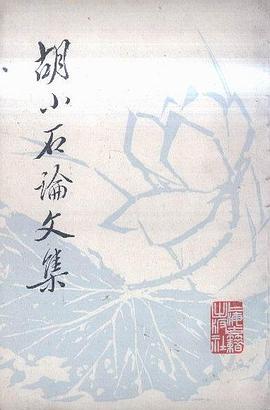 胡小石論文集
上海古籍
出版社